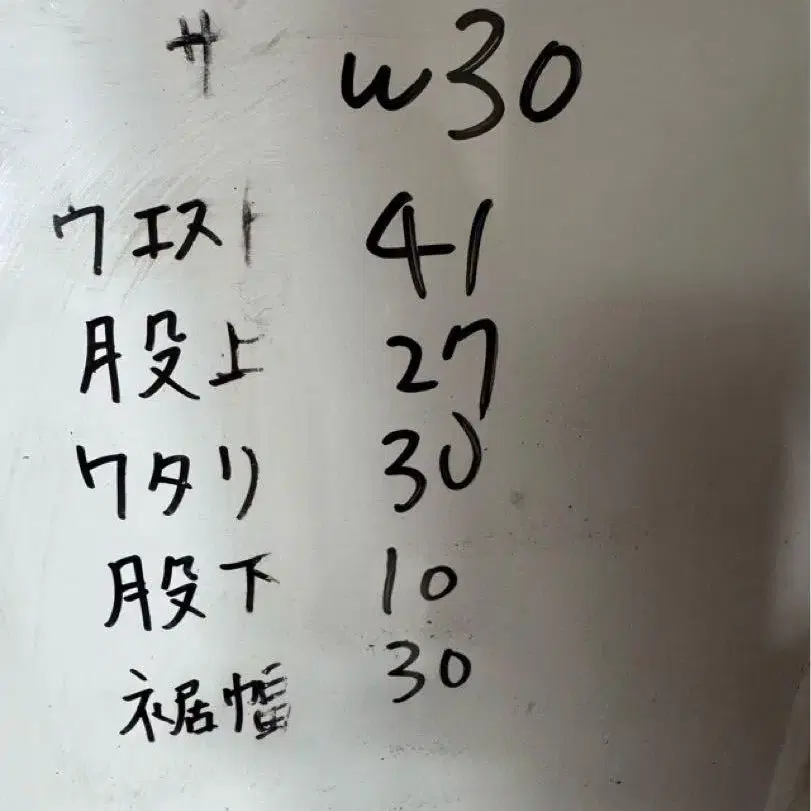 サ W30
ウエスト 41
股上 27
ワタリ 30
股下 10
裾幅 30